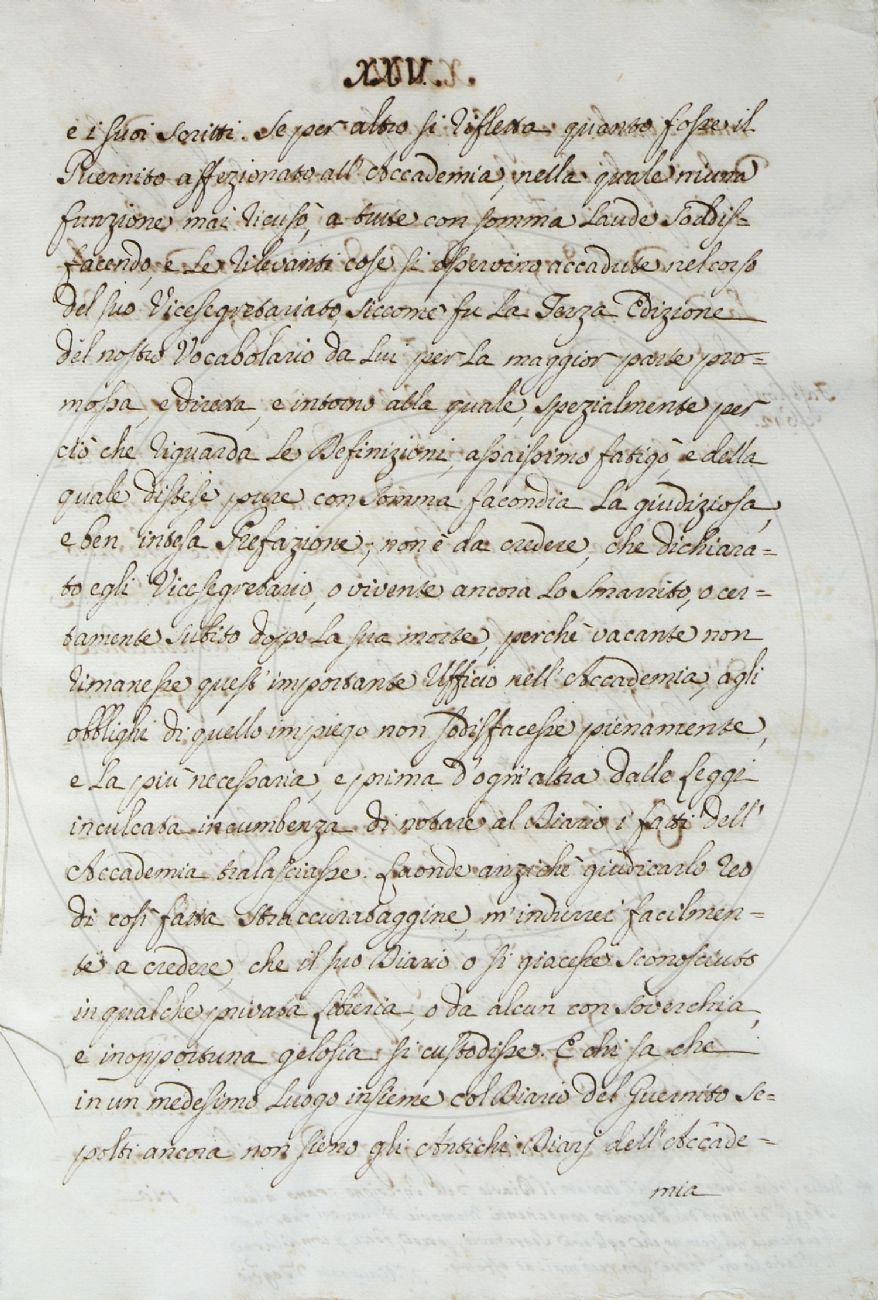 XXVI.
e i suoi scritti. Se per altro si rifletta quanto fosse il
Guernito affezionato all' Accademia, nella quale niuna
funzione mai ricusò, a tutte con somma laude soddis=
facendo, e le rilevanti cose si osservino accadute nel corso
del suo Vicesegretariato, siccome fu la Terza Edizione
del nostro Vocabolario da lui per la maggior parte pro=
mossa, e diretta, e intorno alla quale, spezialmente per
ciò che riguarda le Definizioni, assaissimo fatigò, e della
quale distese pure con somma facondia la giudiziosa,
e ben intesa Prefazione; non è da credere, che dichiara=
to egli Vicesegretario, o vivente ancora lo Smarrito, o cer=
tamente subito dopo la sua morte, perchè vacante non
rimanesse quest' importante Ufficio nell' Accademia, agli
obblighi di quello impiego non sodisfacesse pienamente,
e la più necessaria, e prima d'ogni altra dalle Leggi
inculcata incumbenza di notare al Diario i fatti dell'
Accademia tralasciasse. Laonde anzichè giudicarlo reo
di così fatta straccurataggine, m'indurrei facilmen=
te a credere, che il suo Diario o si giacesse sconosciuto
in qualche privata Libreria, o da alcun con soverchia,
e inopportuna gelosia si custodisse. E chi sa che
in un medesimo luogo insieme col Diario del Guernito se=
polti ancora non sieno gli Antichi Diarj dell' Accade=
mia